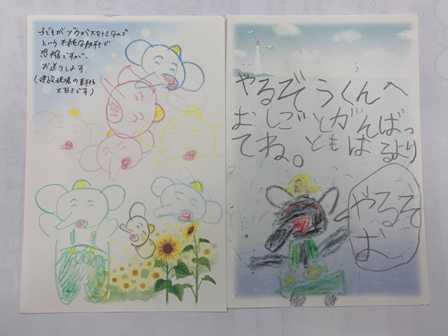 子どもがゾウが大好きなので
という不純な動機で
恐縮ですが、
お送りします
(建設現場の車も
大好きです)
やるぞうくんへ
おしごとがんばっ
てね。ともはるより
やるぞ
ば